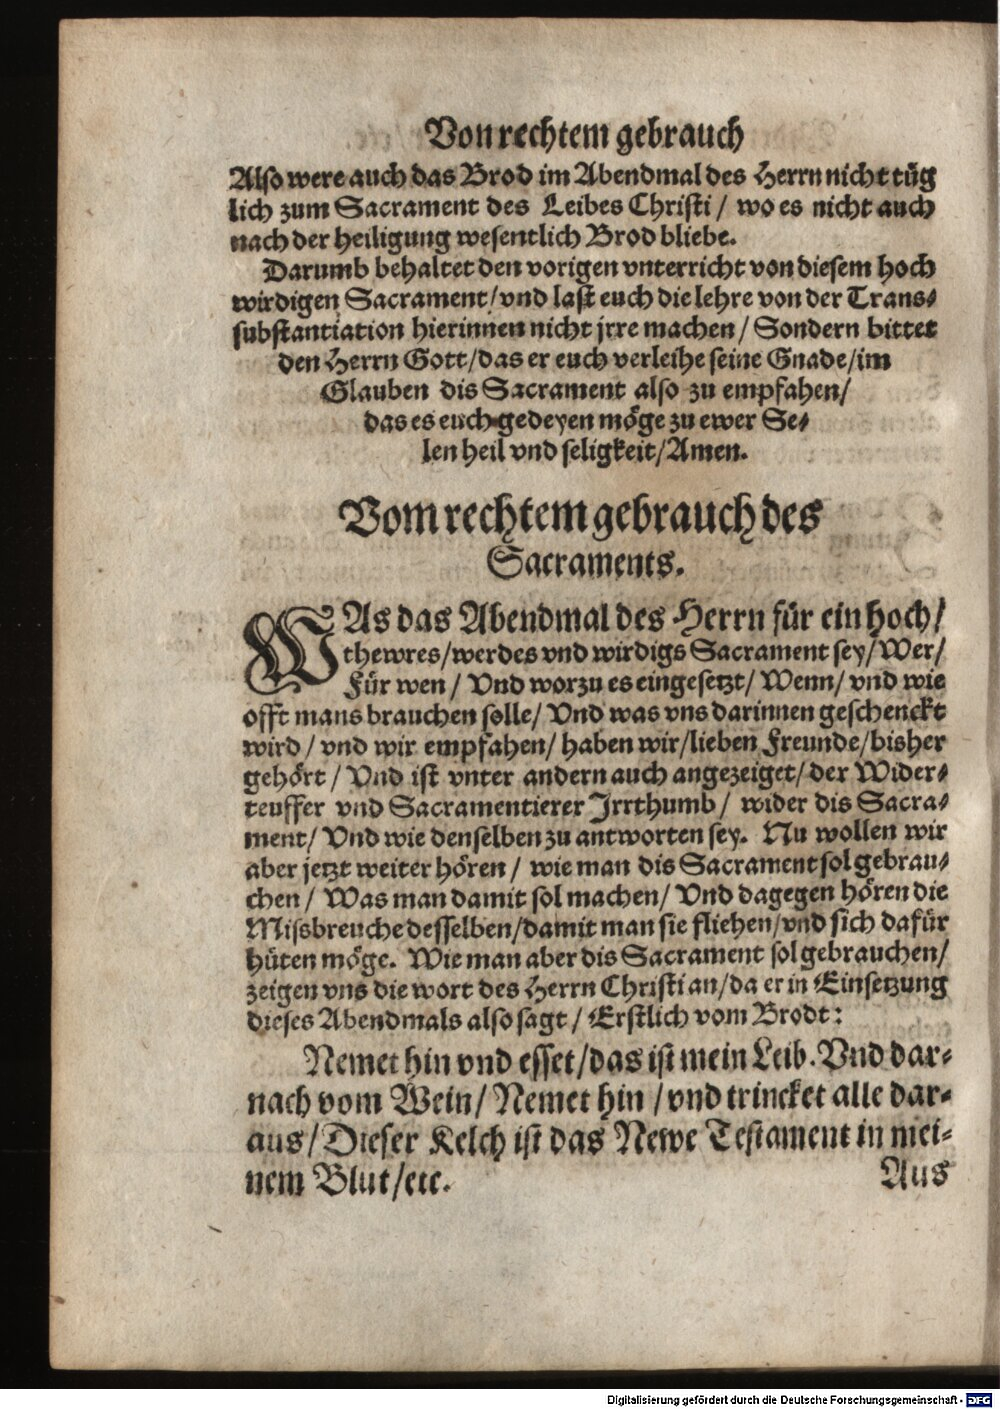 Von rechtem gebrauch
Also were auch das Brod im Abendmal des Herrn nicht tüg
lich zum Sacrament des Leibes Christi / wo es nicht auch
nach der heiligung wesentlich Brod bliebe.
Darumb behaltet den vorigen vnterricht von diesem hoch
wirdigen Sacrament / vnd last euch die lehre von der Trans⸗
substantiation hierinnen nicht jrre machen / Sondern bittet
den Herrn Gott / das er euch verleihe seine Gnade / im
Glauben dis Sacrament also zu empfahen /
das es euch gedeyen möge zu ewer Se⸗
len heil vnd seligkeit / Amen.
Vom rechtem gebrauch des
Sacraments.
WAs das Abendmal des Herrn für ein hoch /
thewres / werdes vnd wirdigs Sacrament sey / Wer /
Für wen / Vnd worzu es eingesetzt / Wenn / vnd wie
offt mans brauchen solle / Vnd was vns darinnen geschenckt
wird / vnd wir empfahen / haben wir / lieben Freunde / bisher
gehört / Vnd ist vnter andern auch angezeiget / der Wider⸗
teuffer vnd Sacramentierer Jrrthumb / wider dis Sacra⸗
ment / Vnd wie denselben zu antworten sey. Nu wollen wir
aber jetzt weiter hören / wie man dis Sacrament sol gebrau⸗
chen / Was man damit sol machen / Vnd dagegen hören die
Missbreuche desselben / damit man sie fliehen / vnd sich dafür
hüten möge. Wie man aber dis Sacrament sol gebrauchen /
zeigen vns die wort des Herrn Christi an / da er in Einsetzung
dieses Abendmals also sagt / Erstlich vom Brodt:
Nemet hin vnd esset / das ist mein Leib. Vnd dar⸗
nach vom Wein / Nemet hin / vnd trincket alle dar⸗
aus / Dieser Kelch ist das Newe Testament in mei⸗
nem Blut / etc.
Aus
Digitalisierung gefördert durch die Deutsche Forschungsgemeinschaft - DFG